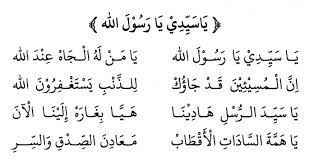 ﴿ يَاسَيِّدِيْ يَا رَسُوْلَ الله ﴾
يَا سَيِّدِي يَا رَسُوْلَ الله يَا مَنْ لَهُ الْجَاهْ عِنْدَ الله
اِنَّ الْمُسِيْئِيْنَ قَدْ جَاؤُكْ لِلذَّنْبِ يَسْتَغْفِرُوْنَ الله
يَا سَيِّدَ الرُّسْلِ هَادِيْنَا هَيَّا بِغَارَهْ إِلَيْنَا الْآنَ
يَا هِمَّةَ السَّادَاتِ الْأَقْطَابْ مَعَادِنَ الصِّدْقِ وَالسِّرِ